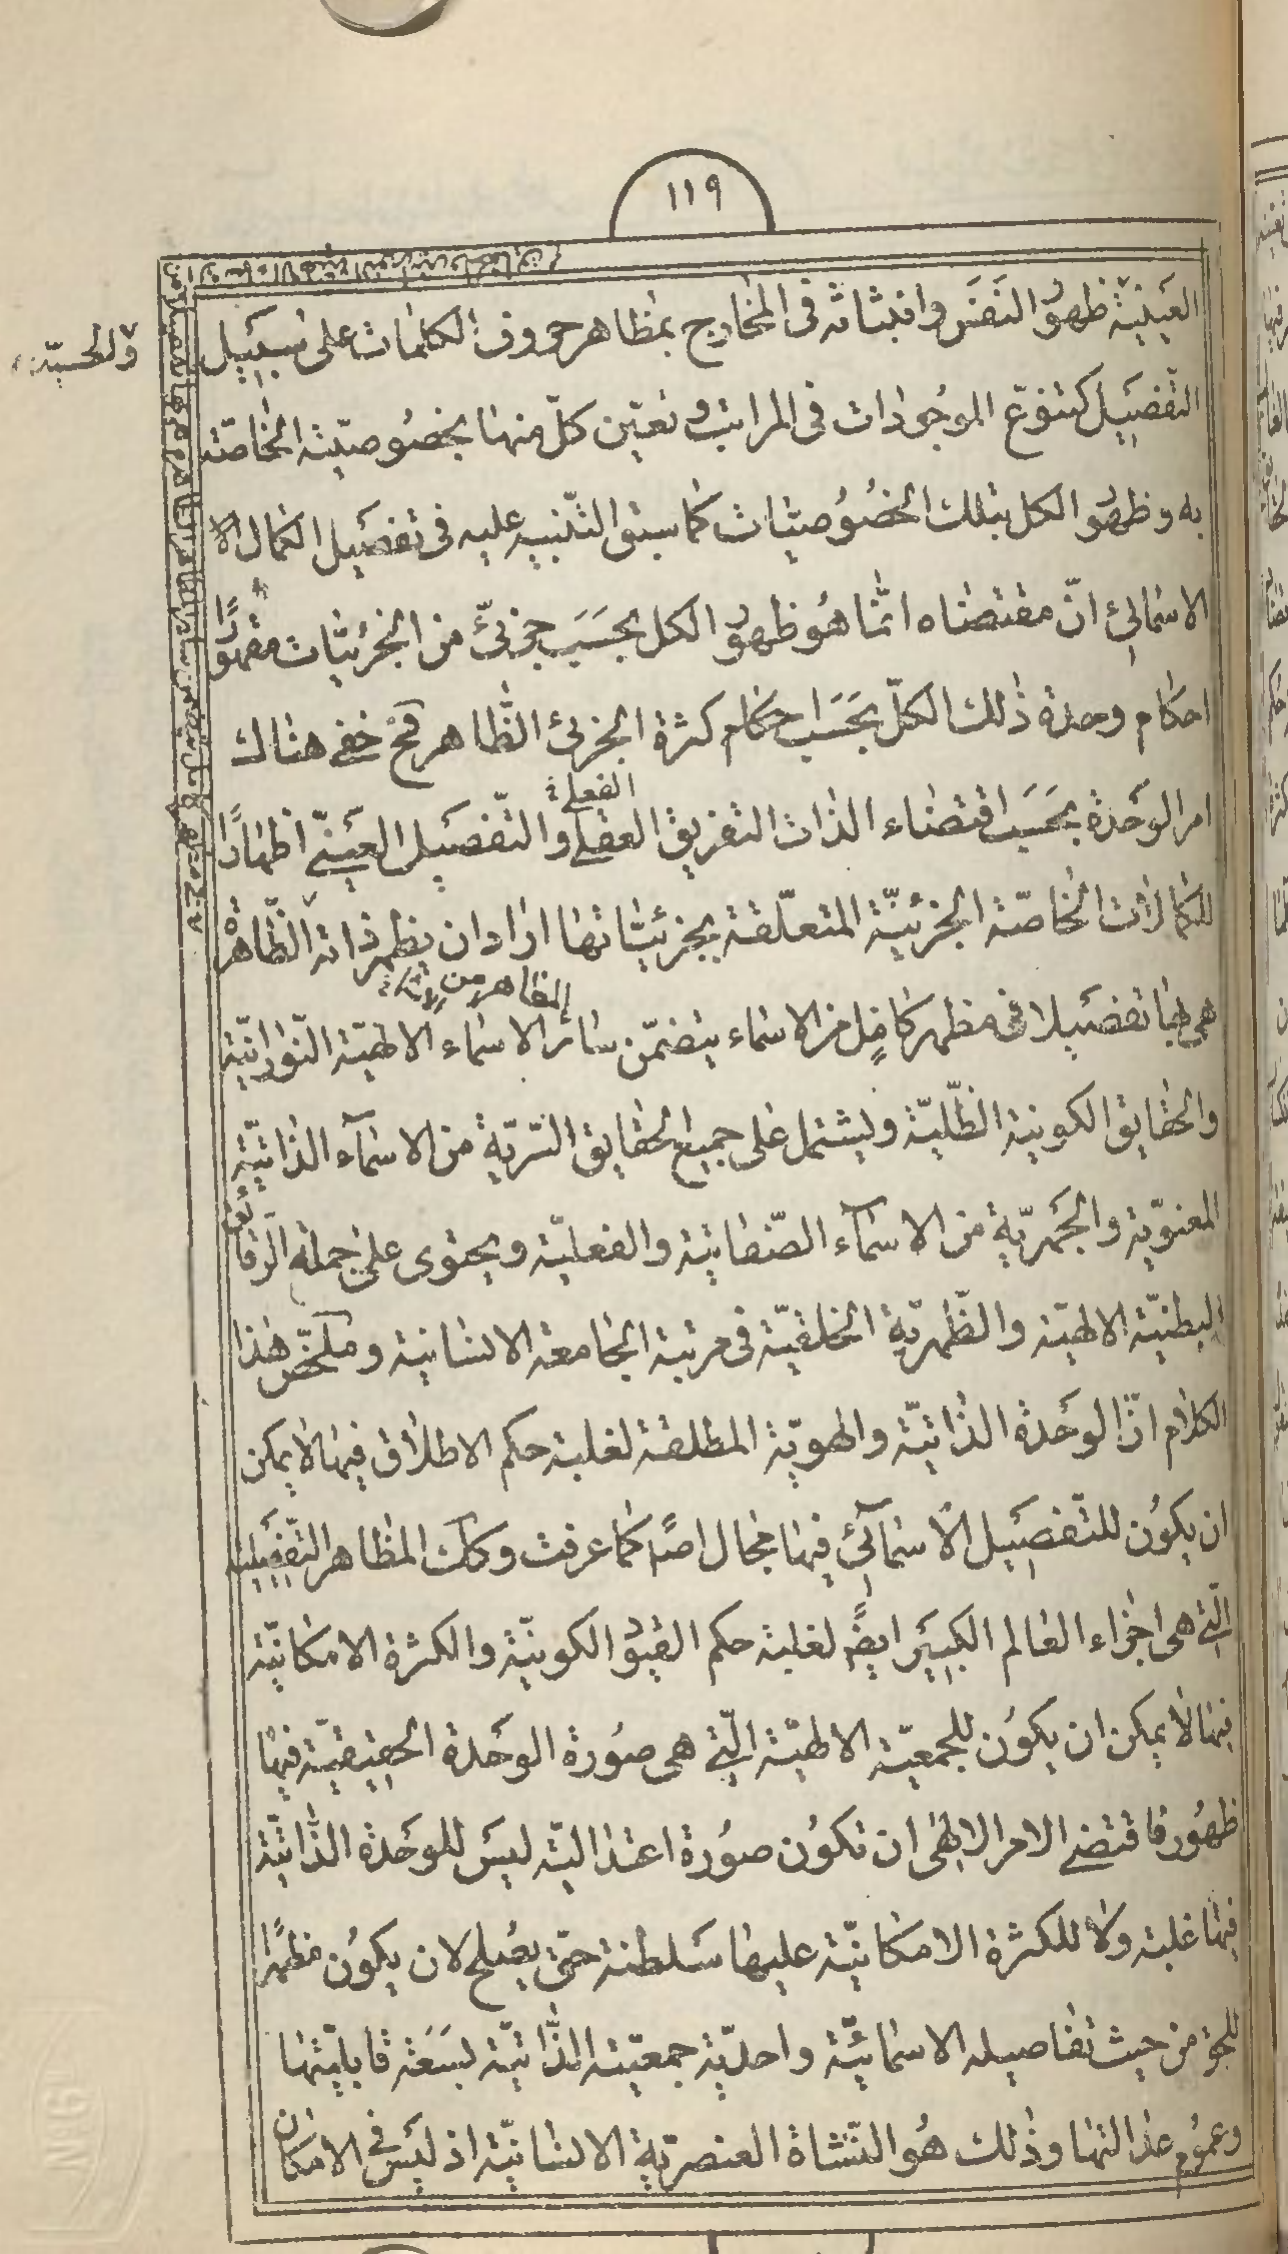 ١١٩
العينيّة ظهور النفس وانبثاثه فى المخارج بمظاهر حروف الكلمات على سبيل
والحسيّة
التفصيل كتنوّع الموجودات فى المراتب وتعيّن كلّ منها بخصوصيّته الخاصّة
به وظهور الكل بتلك الخصوصيّات كما سبق التنبيه عليه فى تفصيل الكمال الا
الاسمائى انّ مقتضاه انّما هو ظهور الكل بحسب جزئىّ من الجزئيّات مقهورًا
احكام وحدة ذلك الكلّ بحسب احكام كثرة الجزئى الظّاهر فح خفى هناك
امر الوحدة بحسب اقتضاء الذات التفريق العقلى والتّفصيل العينىّ اظهارًا
الفعلى
للكمالات الخاصّة الجزئيّة المتعلّقة بجزئيّاتها اراد ان يظهر ذاته الظّاهرة
المظاهر من
هى بها تفصيلا فى مظهر كامل من الاسماء يتضمّن سائر الاسماء الالهيّة النّورانيّة
والحقايق الكونية الظّليّة ويشتمل على جميع الحقايق السّريّة من الاسمآء الذاتيّة
المعنويّة والجهريّة من الاسمآء الصّفاتية والفعليّة ويحتوى على جملة الرقائق
البطنيّة الالهيّة والظّهريّة الخلقيّة فى مرتبة الجامعة الانسانية وملخّص هذا
الكلام انّ الوحدة الذاتيّة والهويّة المطلقة لغلبة حكم الاطلاق فيها لا يمكن
ان يكون للتّفصيل الاسمآئى فيها مجال اصلا كما عرفت وكك المظاهر التّفصيليّة
الّتى هى اجزاء العالم الكبير ايضًا لغلبة حكم القيود الكونيّة والكثرة الامكانيّة
فيها لا يمكن ان يكون للجمعيّة الالهيّة الّتى هى صورة الوحدة الحقيقيّة فيها
ظهور فاقتضى الامر الالهى ان تكون صورة اعتداليّة ليس للوحدة الذّاتيّة
فيها غلبة ولا للكثرة الامكانيّة عليها سلطنة حتى يصلح لان يكون مظهرًا
للحق من حيث تفاصيله الاسمائيّة واحديّة جمعيّته الذّاتيّة لسعة قابليّتها
وعموم عدالتها وذلك هو النّشاة العنصريّة الانسانيّة اذ ليس فى الامكان